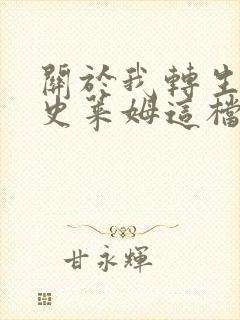 關於我轉生
史萊姆這檔
甘永輝